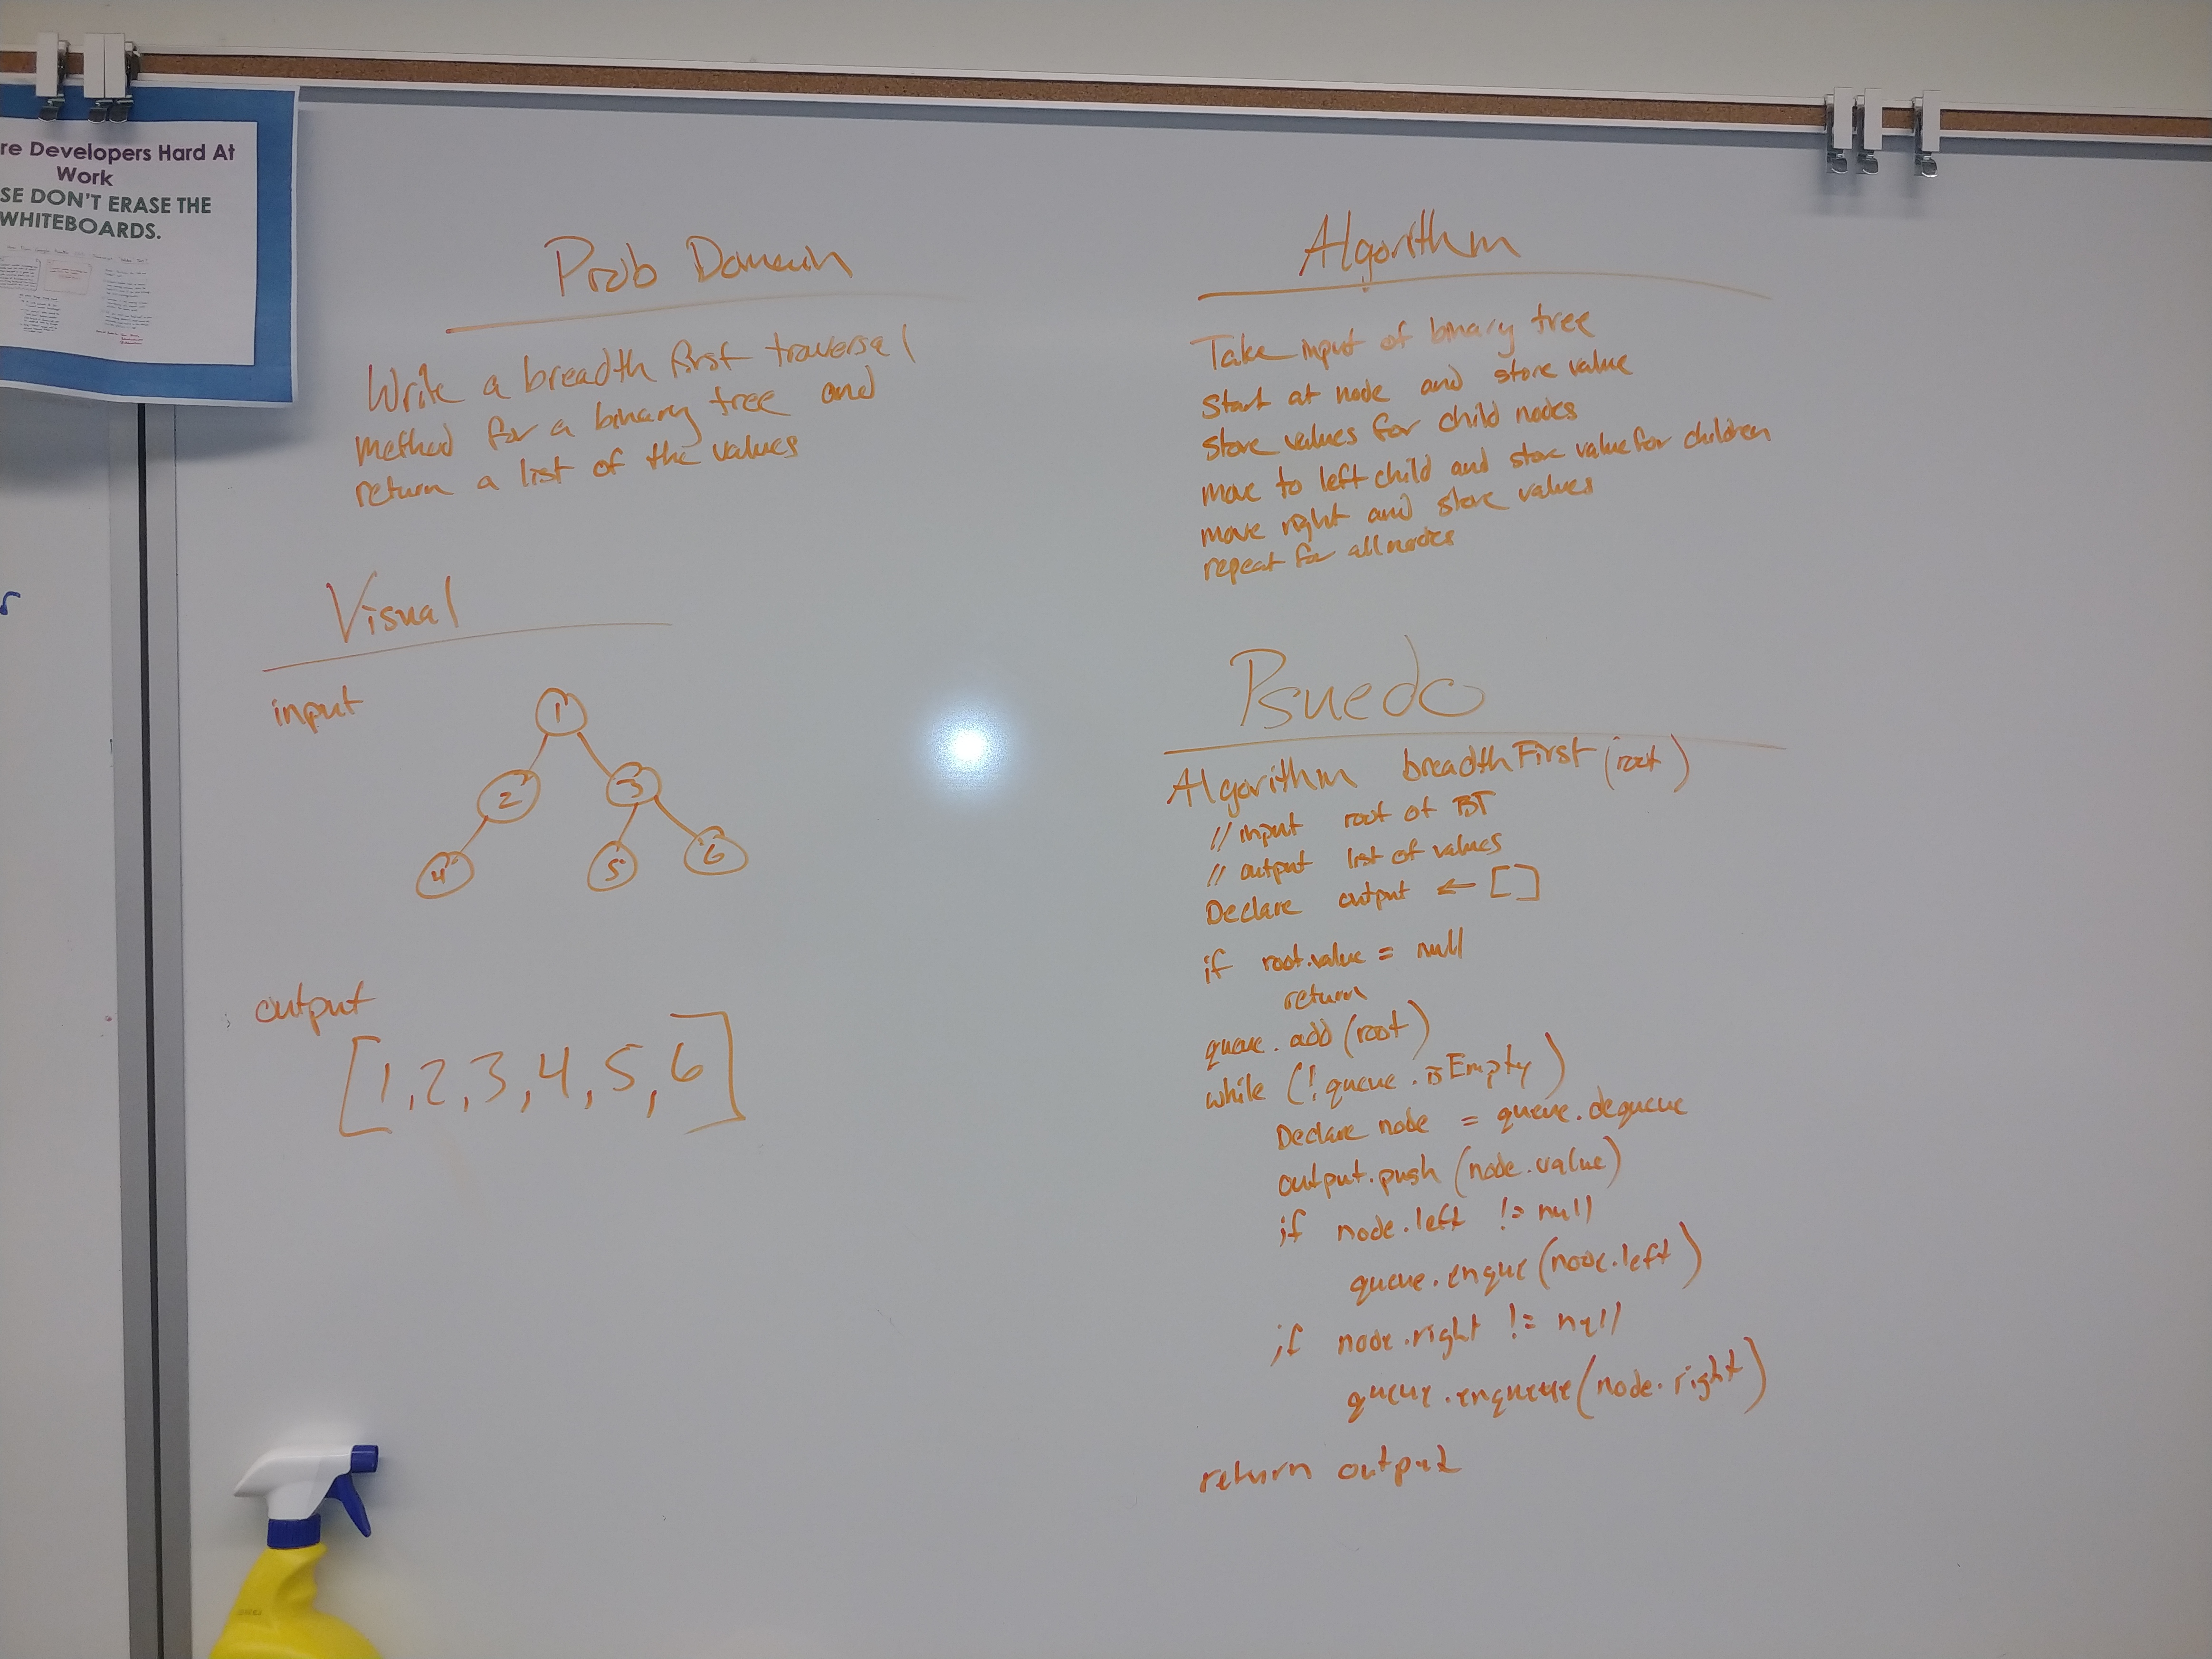 re Developers Hard At
Work
SE DON'T ERASE THE
WHITEBOARDS.
Prob Domain
Write a breadth first traversal
method for a binary tree and
return a list of the values
Visual
input
1
2
3
4
5
6
output
[1,2,3,4,5,6]
Algorithm
Take input of binary tree
Start at node and store value
Store values for child nodes
move to left child and store value for children
move right and store values
repeat for all nodes
Psuedo
Algorithm breadthFirst (root)
// input root of BT
// output list of values
Declare output ← []
if root.value = null
return
queue.add (root)
while (! queue.isEmpty)
Declare node = queue.dequeue
output.push (node.value)
if node.left != null
queue.enque (node.left)
if node.right != null
queue.enqueue (node.right)
return output